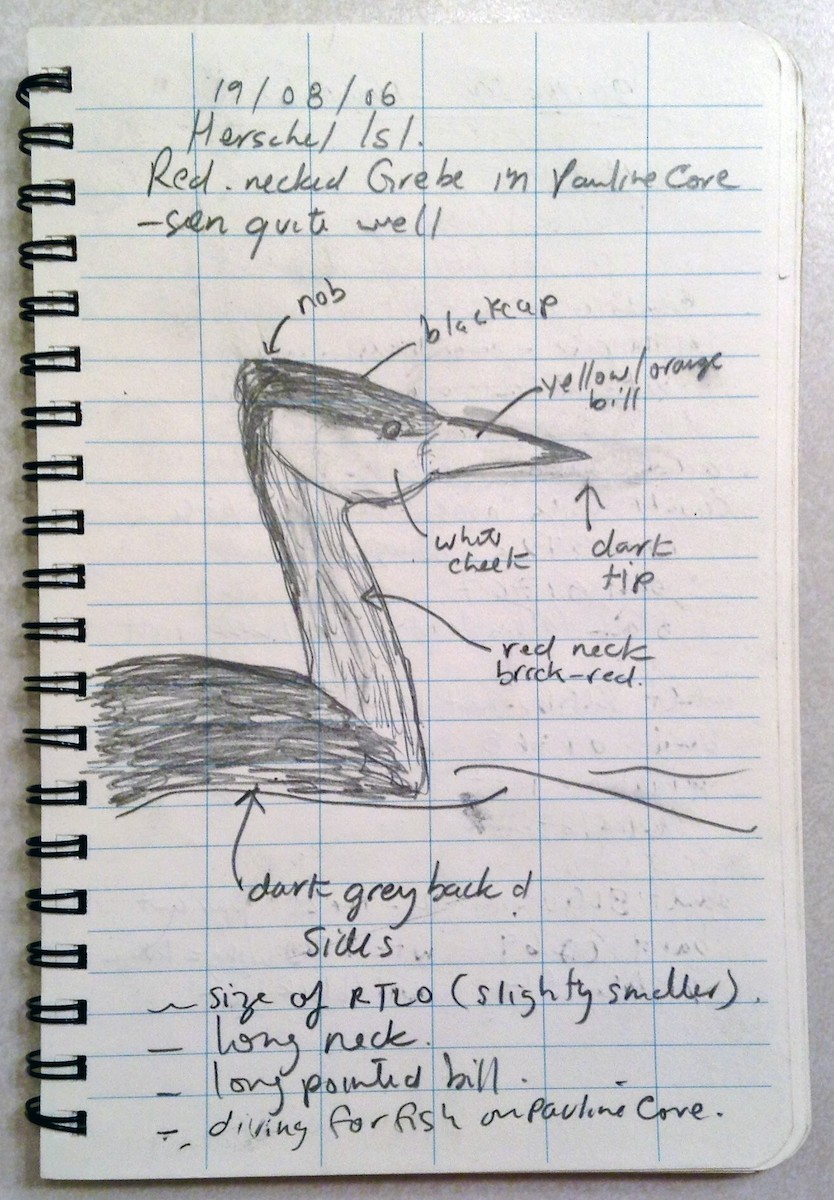 19/08/06
Herschel Isl.
Red-necked Grebe in Pauline Cove
- seen quite well
nob
black cap
yellow/orange
bill
white
cheek
dark
tip
red neck
brick-red.
dark grey back &
sides
- size of RTLO (slightly smaller).
- long neck.
- long pointed bill.
- diving for fish in Pauline Cove.